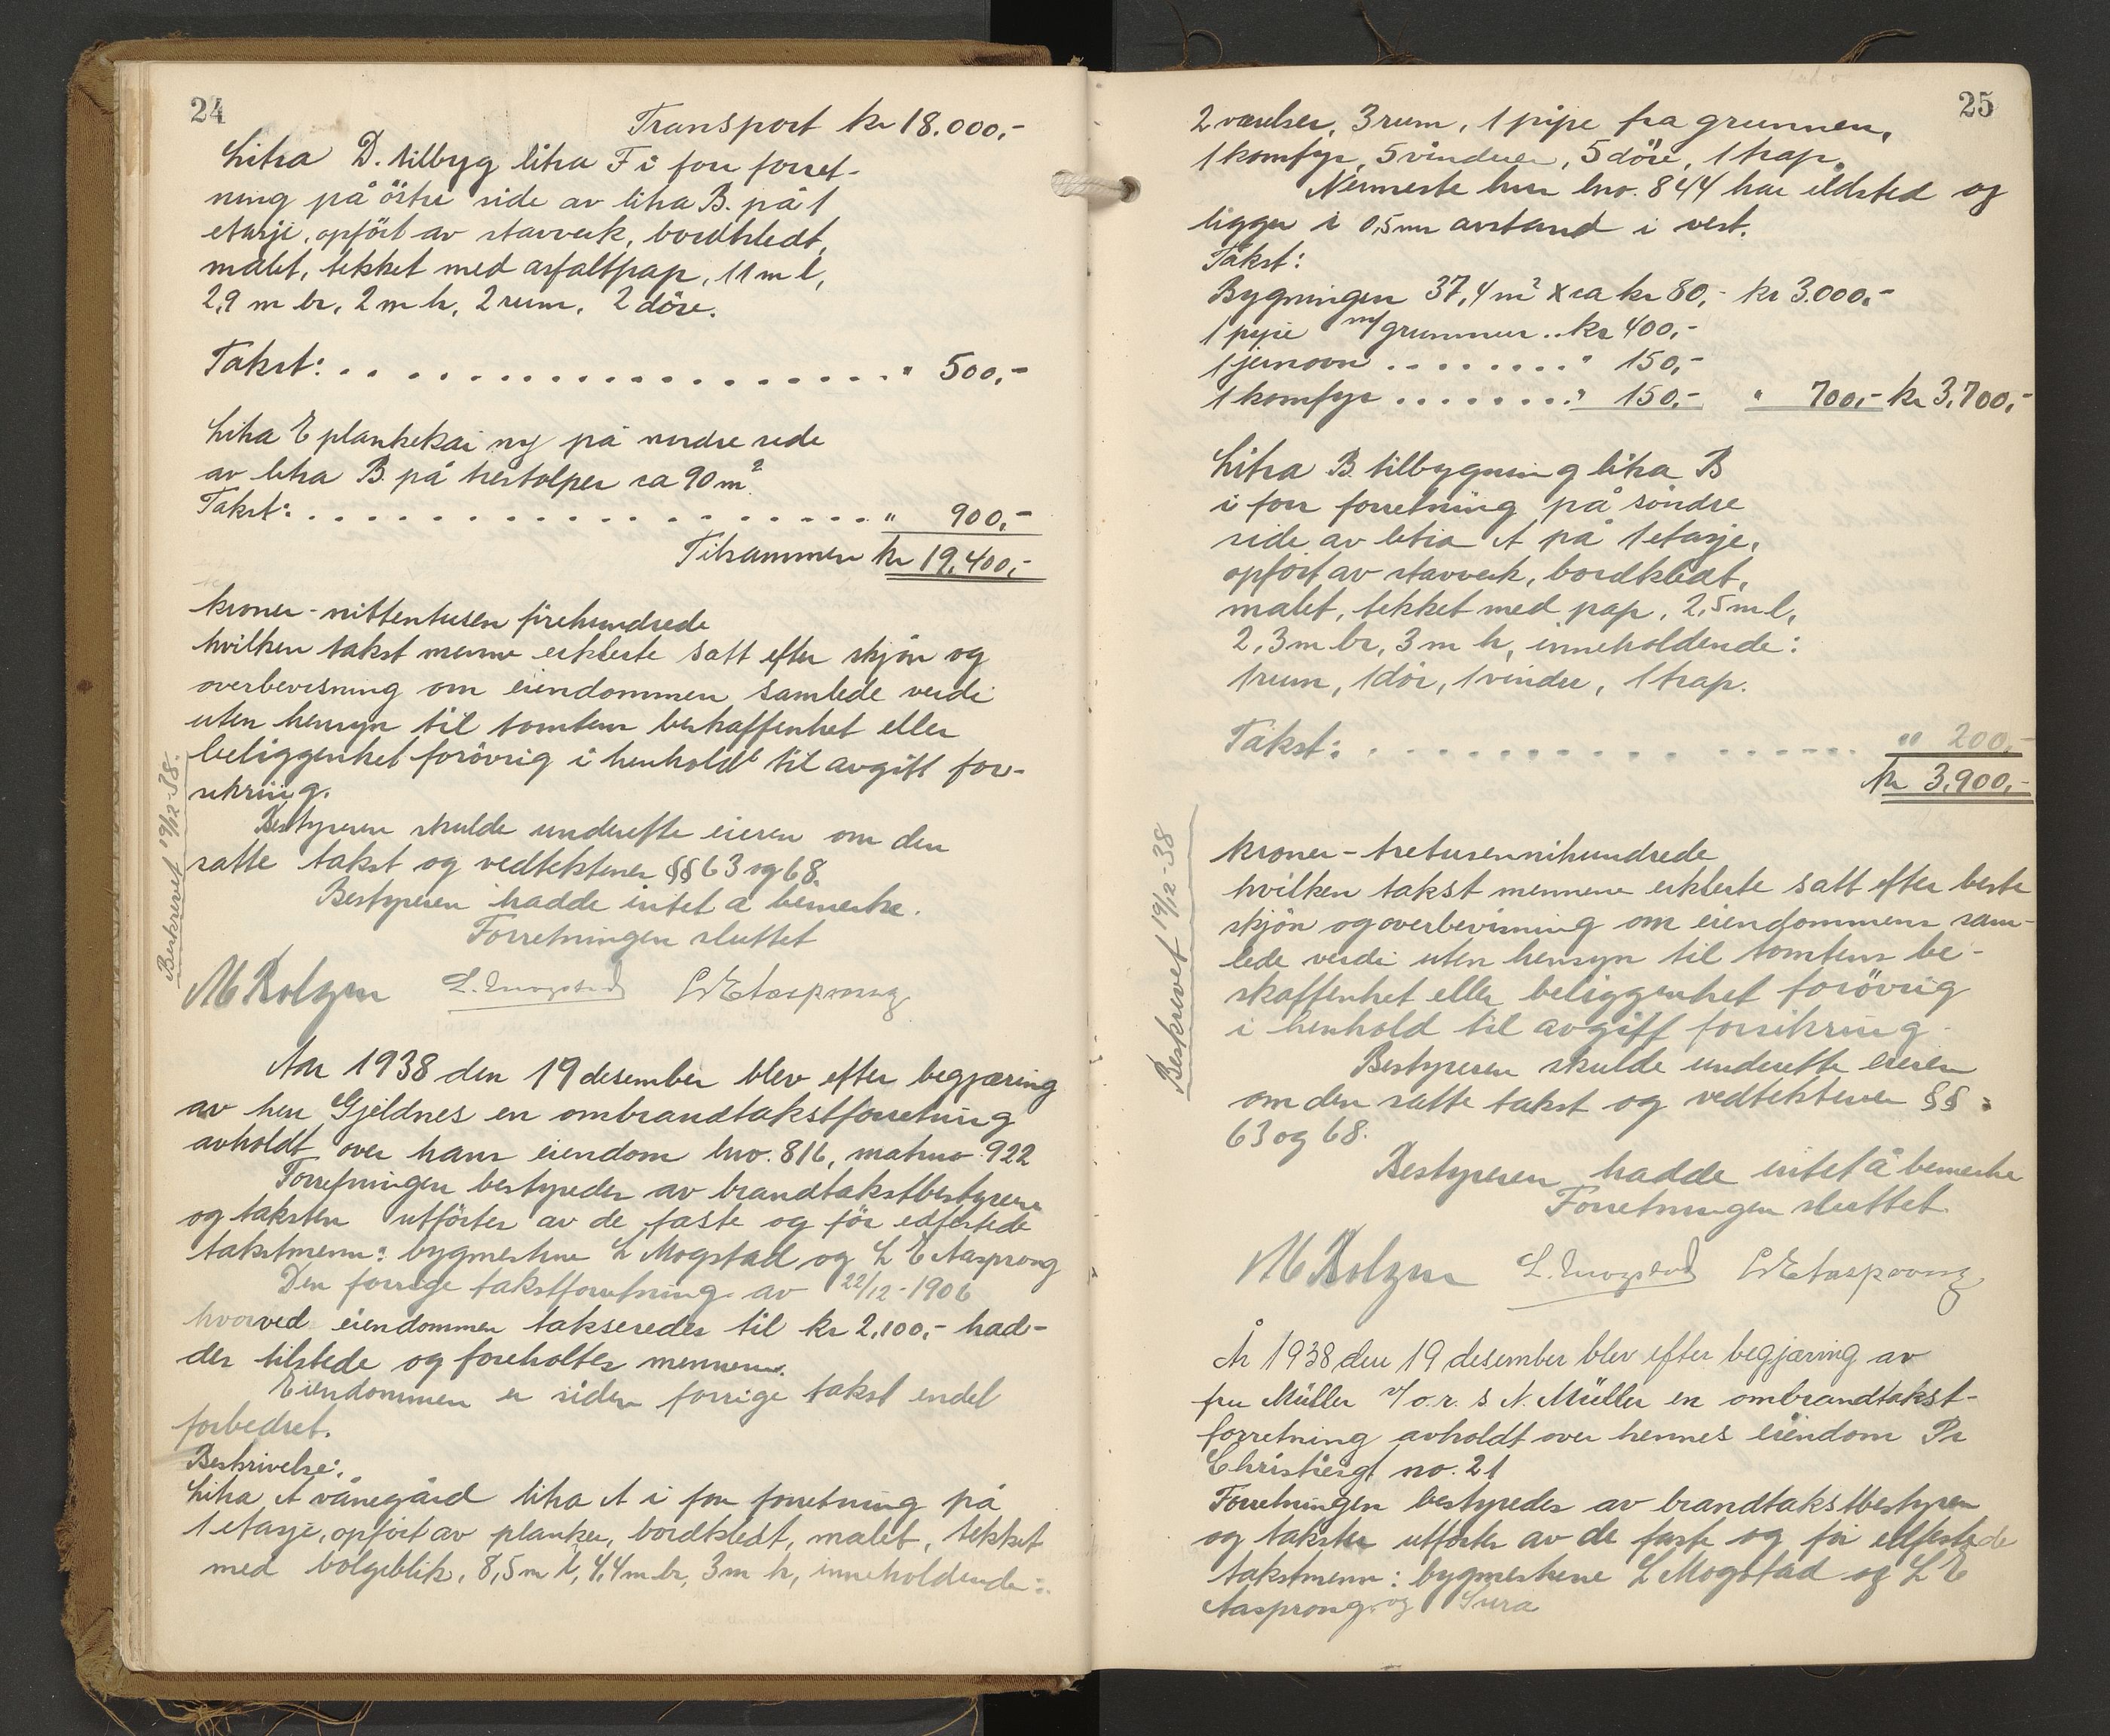 24
Transport kr 18.000,-
Litra D. tilbyg litra F i forr forret-
ning på östre side av litra B. på 1
etasje, opfört av stavverk, bordkledt,
malet, tekket med asfaltpap, 11 m l,
2,9 m br, 2 m h, 2 rum, 2 döre.
Takst: . . . . . . . . . . . . . . . . . . . " 500,-
Litra E plankekai ny på nordre side
av litra B på trestolper ca 90 m².
Takst: . . . . . . . . . . . . . . . . . . . " 900,-
Tilsammen kr 19.400,-
kroner - nittentusen firehundrede
hvilken takst menne erklerte satt efter skjön og
overbevisning om eiendommen samlede verdi
uten hensyn til tomtens beskaffenhet eller
beliggenhet forövrig i henhold til avgitt for-
sikring.
Bestyreren skulde underette eieren om den
satte takst og vedtektene §§ 63 og 68.
Bestyreren hadde intet a bemerke.
Forretningen sluttet
Beskrevet 19/12-38.
L. Mogstad L E Aasprong
Aar 1938 den 19 desember blev efter begjæring
av herr Gjeldnes en ombrandtakstforretning
avholdt over hans eiendom lno. 816, matrno 922
Forretningen bestyredes av brandtakstbestyrere
og taksten utförtes av de faste og för edfestede
takstmenn: bygmestrene L Mogstad og L E Aasprong
Den forrige takstforretning av 22/12-1906
hvorved eiendommen takseredes til kr 2.100,- had-
des tilstede og foreholtes mennene.
Eiendommen er siden forrige takst endel
forbedret.
Beskrivelse:
Litra A vånegård litra A i forr forretning på
1 etasje, opfört av planker, bordkledt, malet, tekket
med bolgeblik, 8,5 m l, 4,4 m br, 3 m h, inneholdende:
25
2 værelser, 3 rum, 1 pipe fra grunnen,
1 komfyr, 5 vinduer, 5 döre, 1 trap.
Nermeste hus lno. 844 har ildsted og
ligger i 0,5 m avstand i vest.
Takst:
Bygningen 37,4 m² x ca kr 80,- kr 3.000,-
1 pipe m/ grunmur .. kr 400,-
1 jernovn . . . . . . . . " 150,-
1 komfyr . . . . . . . . " 150,- " 700,- kr 3.700,-
Litra B. tilbygning litra B
i forr forretning på söndre
side av litra A på 1 etasje,
opfört av stavverk, bordkledt,
malet, tekket med pap, 2,5 m l,
2,3 m br, 3 m h, inneholdende:
1 rum, 1 dör, 1 vindu, 1 trap.
Takst: . . . . . . . . . . . . . . . . . " 200,-
kr 3.900,-
kroner - tretusennihundrede
hvilken takst mennene erklerte satt efter beste
skjön og overbevisning om eiendommens sam-
lede verdi uten hensyn til tomtens be-
skaffenhet eller beliggenhet forövrig
i henhold til avgitt forsikring.
Bestyreren skulde underette eieren
om den satte takst og vedtektene §§ :
63 og 68.
Bestyreren hadde intet å bemerke
Forretningen sluttet.
Beskrevet 19/12-38
L. Mogstad L E Aasprong
År 1938 den 19 desember blev efter begjæring av
fru Müller v/ o.r. s N. Müller en ombrandtakst-
forretning avholdt over hennes eiendom Pr
Christiesgt no. 21
Forretningen bestyredes av brandtakstbestyren
og taksten utfortes av de faste og för edfestede
takstmenn: bygmestrene L Mogstad og L E
Aasprong og